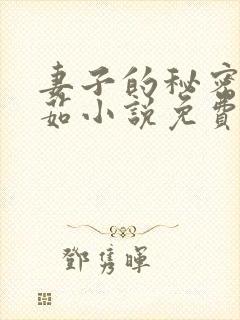 妻子的秘密
茹小説免費
鄧雋暉